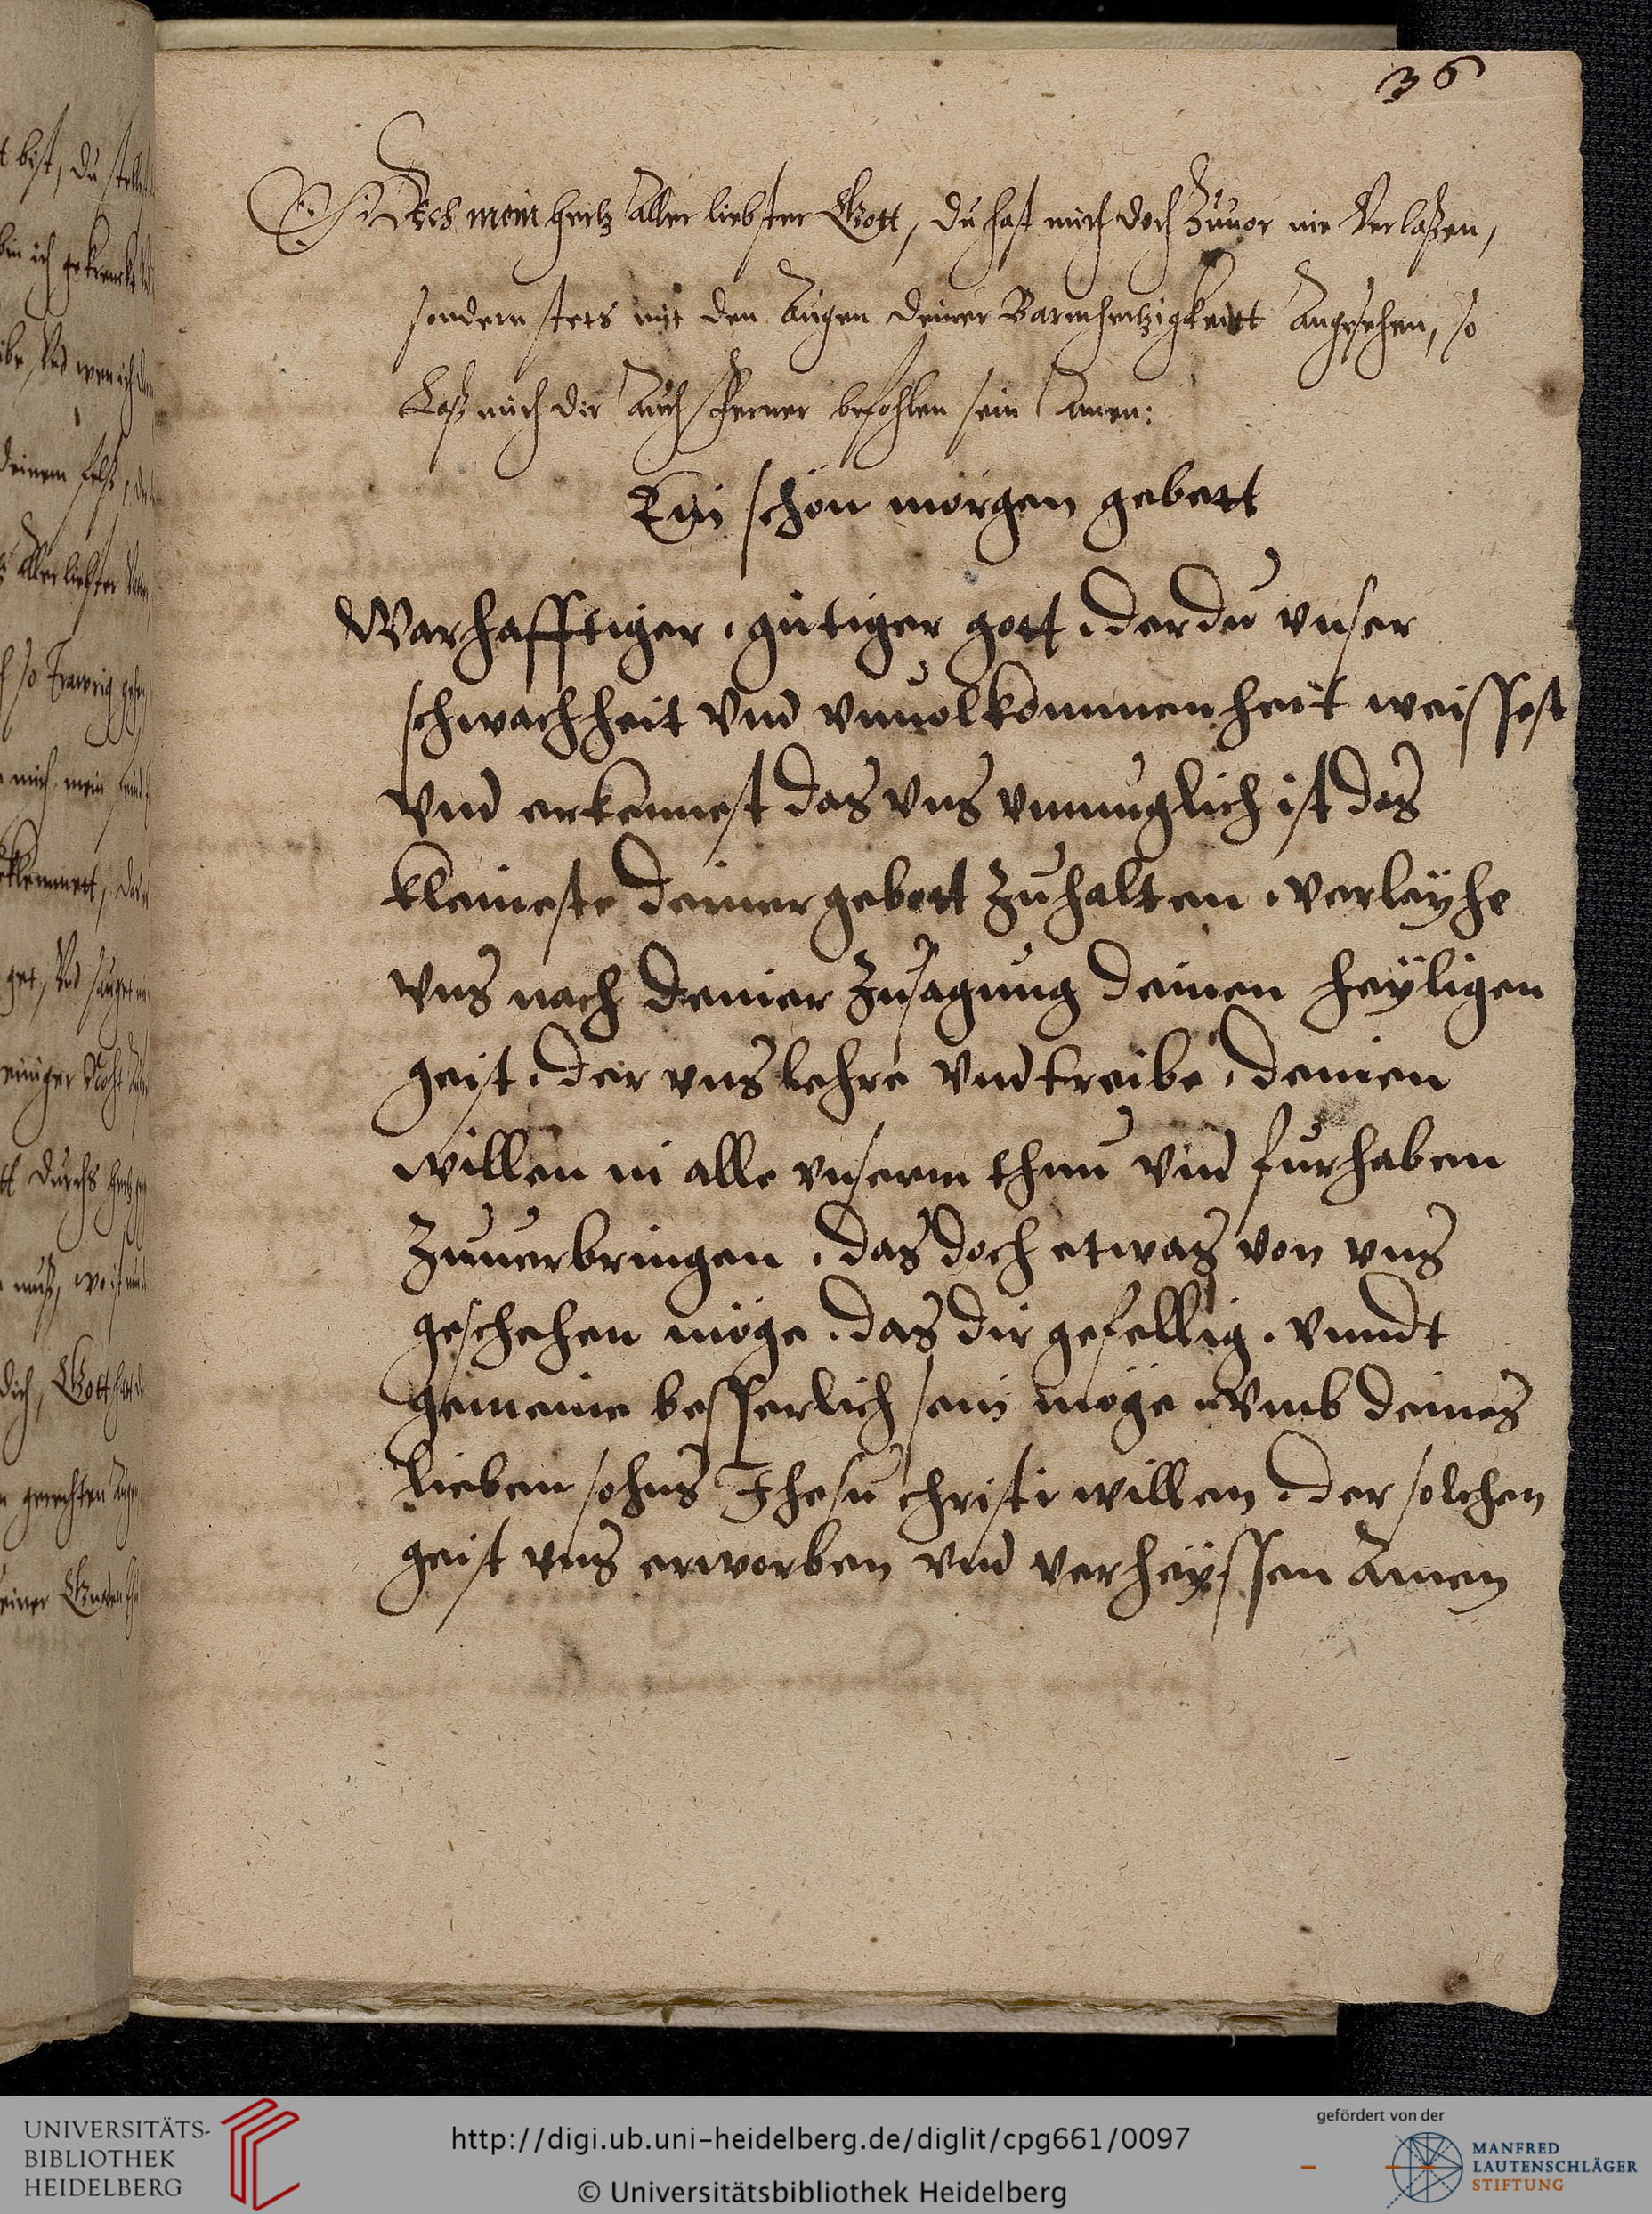 36
Ach mein hertz aller liebster Gott, du hast mich doch zuuor nie Verlaßen,
sondern stets mit den Augen deiner Barmhertzigkeitt Angesehen, so
Laß mich dir Auch Ferner befohlen sein Amen:
Ein schön morgen gebett
Warhafftiger, gütiger gott, der du vnser
schwachheit vnd vnuolkommenheit weissest
vnd erkennest das vns vnmuglich ist das
kleineste deiner gebott zuhalten, verleyhe
vns nach deiner zusagung deinen heyligen
geist, der vns lehre vnd treibe, deinen
willen in alle vnserm thun vnd furhaben
zuuerbringen, das doch etwas von vns
geschehen möge, das dir gefellig, vnndt
gemeine besserlich sein möge, vmb deines
lieben sohns Jhesu christi willen, der solchen
geist vns erworben vnd verheyssen Amen
UNIVERSITÄTS-
BIBLIOTHEK
HEIDELBERG
http://digi.ub.uni-heidelberg.de/diglit/cpg661/0097
© Universitätsbibliothek Heidelberg
gefördert von der
MANFRED
LAUTENSCHLÄGER
STIFTUNG